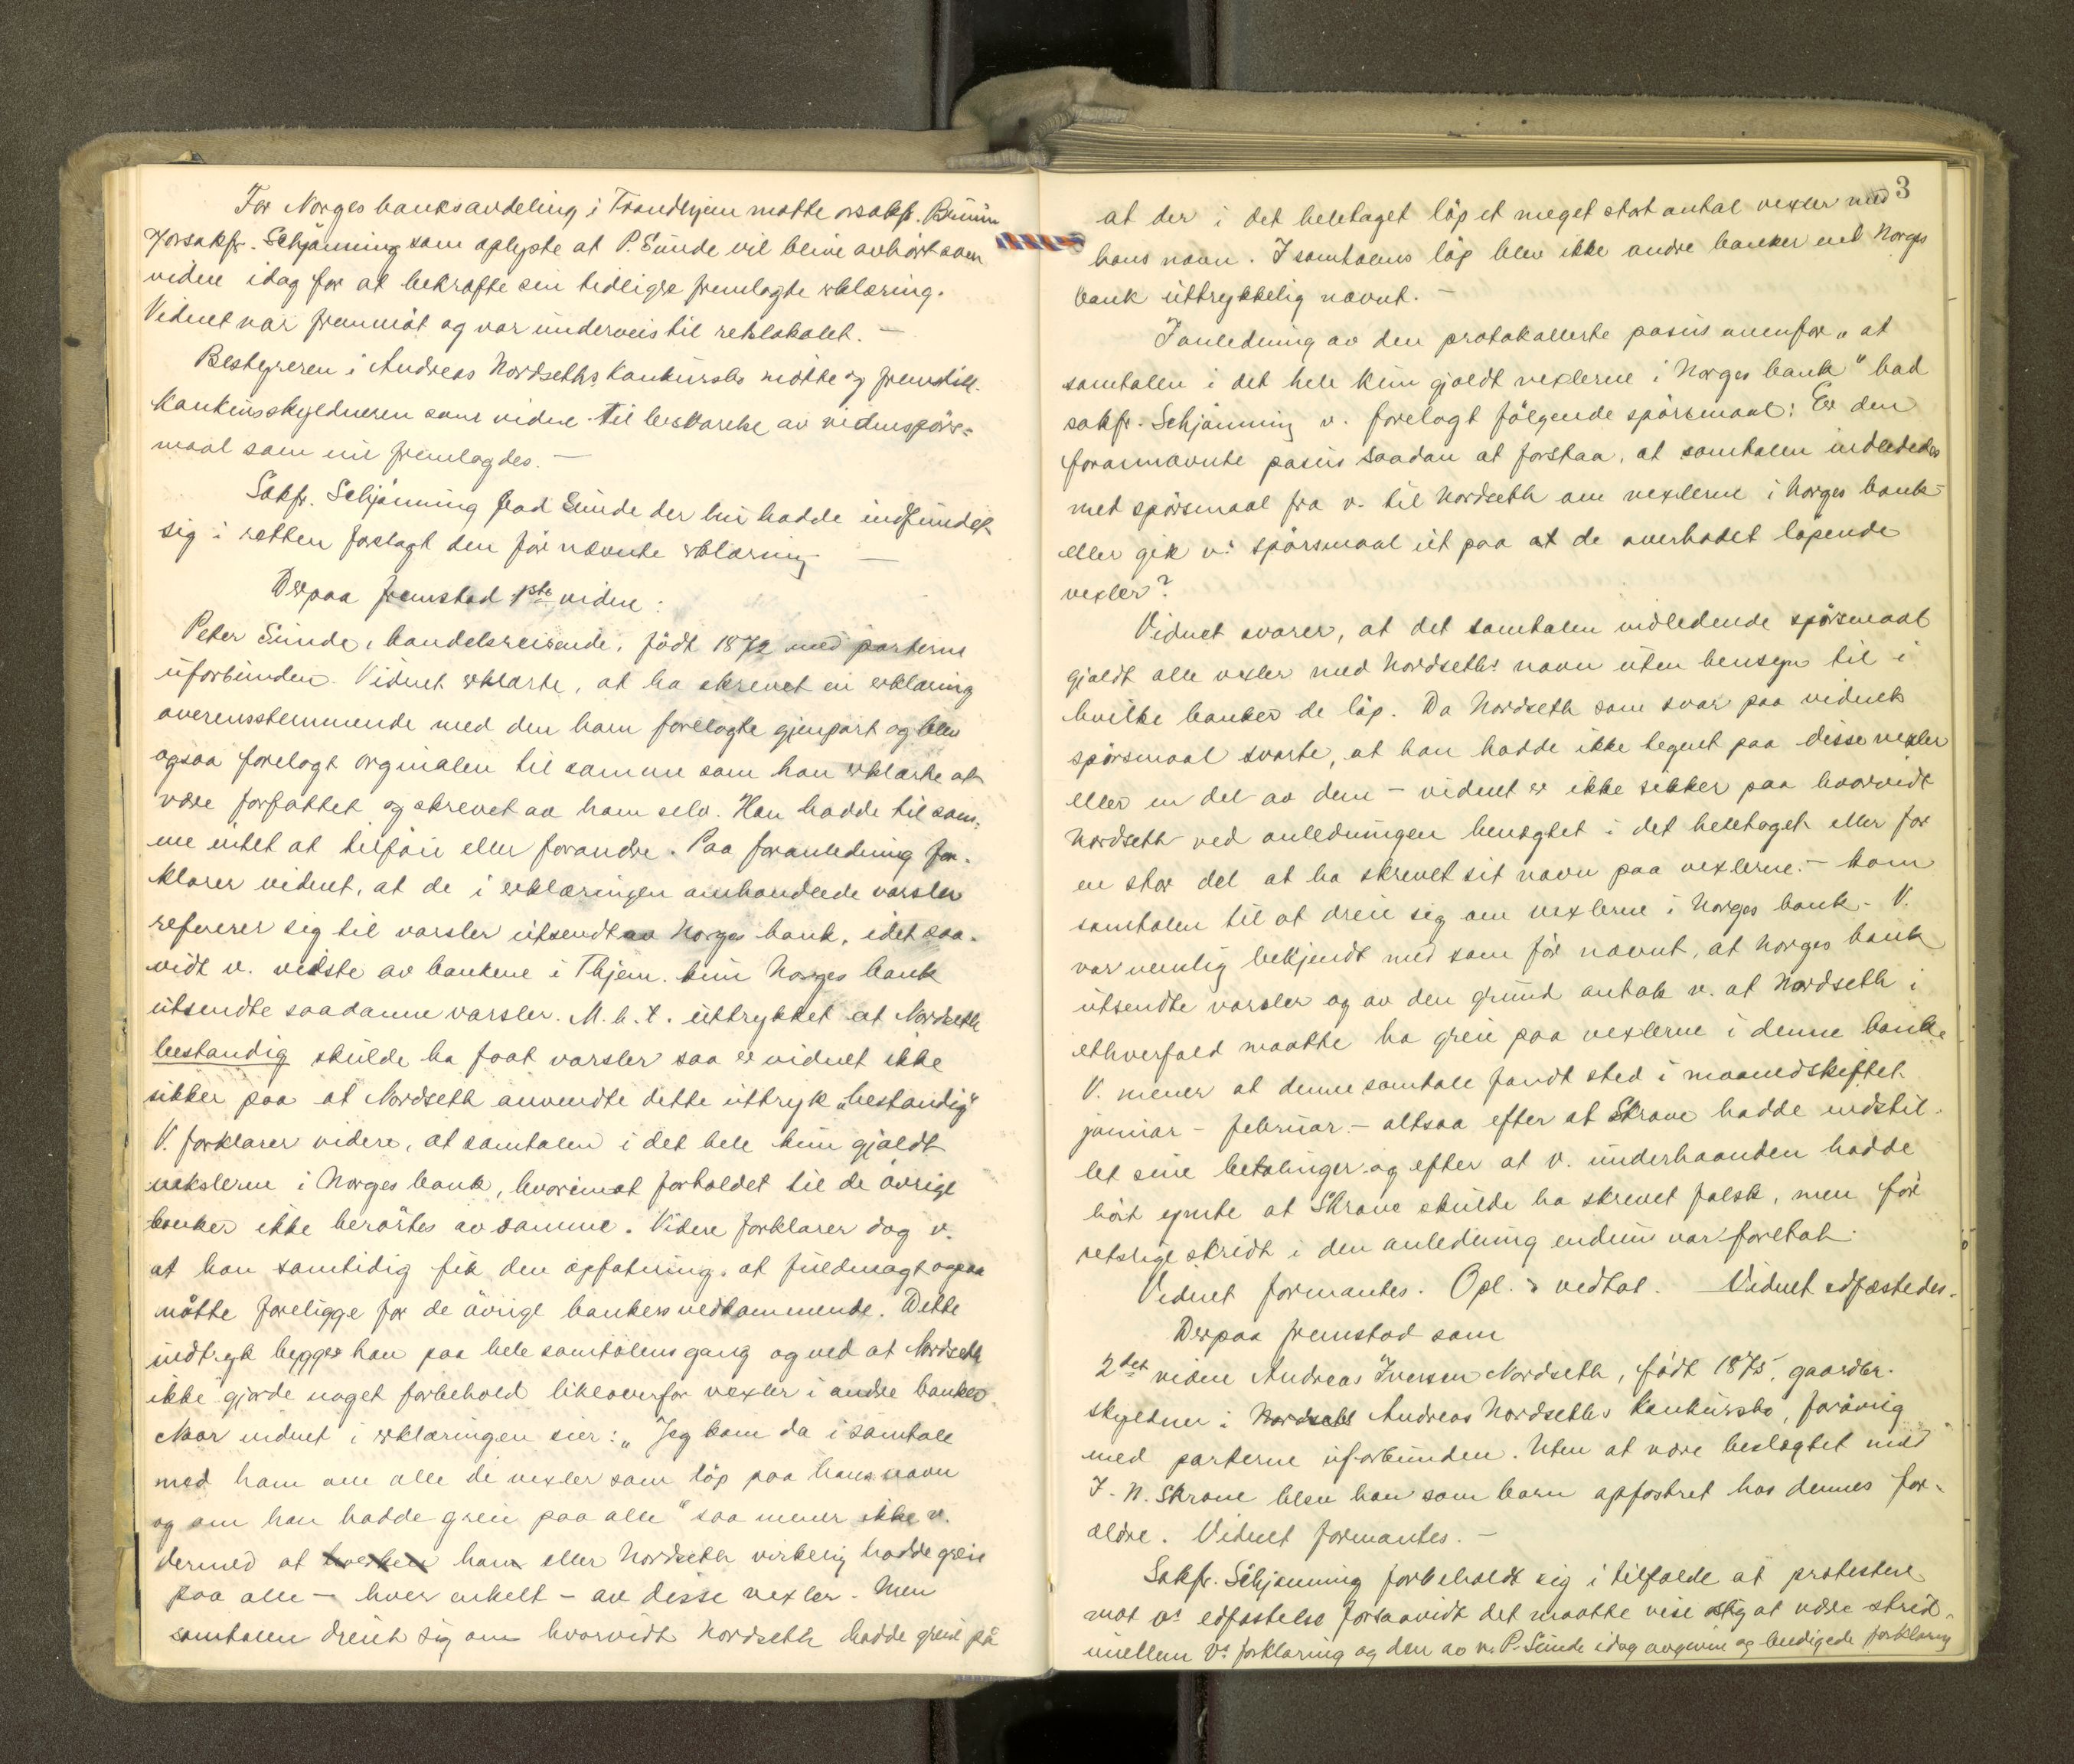 For Norges banksavdeling i Trondhjem møtte orsakfr. Bruun
v/orsakfr. Schjønning som oplyste at P. Sunde vil blive avhørt som
vidne idag for at bekræfte sin tidligre fremlagte erklæring.
Vidnet var fremmøt og var underveis til retslokalet. —
Bestyreren i Andreas Nordseths konkursbo møtte og fremstill.
konkursskyldneren som vidne til besvarelse av vidnespørs=
maal som nu fremlagdes. —
Sakfr. Schjønning bad Sunde der nu hadde indfundet
sig i retten forelagt den før nævnte erklæring —
Derpaa fremstod 1ste vidne:
Peter Sunde, handelsreisende, født 1872 med parterne
uforbunden. Vidnet erklærte, at ha skrevet en erklæring
overensstemmende med den ham forelagte gjenpart og blev
ogsaa forelagt orginalen til samme som han erklærte at
være forfattet og skrevet av ham selv. Han hadde til sam-
me intet at tilføie eller forandre. Paa foranledning for-
klarer vidnet, at de i erklæringen omhandlede varsler
referer sig til varsler utsendt av Norges bank, idet saa-
vidt v. vidste av bankene i Thjem. kun Norges bank
utsendte saadanne varsler. M.h.t. uttrykket at Nordseth
bestandig skulde ha faat varsler saa er vidnet ikke
sikker paa at Nordseth anvendte dette uttryk „bestandig"
V. forklarer videre, at samtalen i det hele kun gjaldt
vekslerne i Norges bank, hvorimot forholdet til de øvrige
banker ikke berørtes av samme. Videre forklarer dog v.
at han samtidig fik den opfatning, at fuldmagt ogsaa
måtte foreligge for de øvrige bankers vedkommende. Dette
indtryk bygger han paa hele samtalens gang og ved at Nordseth
ikke gjorde noget forbehold likeoverfor vexler i andre banker.
Naar vidnet i erklæringen sier: „Jeg kom da i samtale
med ham om alle de vexler som løp paa hans navn
og om han hadde greie paa alle" saa mener ikke v.
dermed at hverken ham eller Nordseth virkelig hadde greie
paa alle — hver enkelt — av disse vexler. Men
samtalen dreiet sig om hvorvidt Nordseth hadde greie på
3
at der i det heletaget løp et meget stort antal vexler med
hans navn. I samtalens løp blev ikke andre banker end Norges
bank uttrykkelig nævnt. —
I anledning av den protokollerte pasus ovenfor „at
samtalen i det hele kun gjaldt vexlerne i Norges bank" bad
sakfr. Schjønning v. forelagt følgende spørsmaal: Er den
forannævnte pasus saadan at forstaa, at samtalen indlededes
med spørsmaal fra v. til Nordseth om vexlerne i Norges bank
eller gik v's spørsmaal ut paa at de overhodet løpende
vexler?
Vidnet svarer, at det samtalen indledende spørsmaal
gjaldt alle vexler med Nordseths navn uten hensyn til i
hvilke banker de løp. Da Nordseth som svar paa vidnets
spørsmaal svarte, at han hadde ikke tegnet paa disse vexler
eller en del av dem — vidnet er ikke sikker paa hvorvidt
Nordseth ved anledningen benægtet i det heletaget eller for
en stor del at ha skrevet sit navn paa vexlerne — kom
samtalen til at dreie sig om vexlerne i Norges bank. V.
var nemlig bekjendt med som før nævnt, at Norges bank
utsendte varsler og av den grund antok v. at Nordseth i
ethvertfald maatte ha greie paa vexlerne i denne bank.
V. mener at denne samtale fandt sted i maanedskiftet
januar - februar — altsaa efter at Skrove hadde indstil-
let sine betalinger og efter at v. underhaanden hadde
hørt ymte at Skrove skulde ha skrevet falsk, men før
retslige skridt i den anledning endnu var foretat.
Vidnet formantes. Opl. & vedtat. Vidnet edfæstedes.
Derpaa fremstod som
2det vidne Andreas Iversen Nordseth, født 1875, gaardbr.
skyldner i Nordseth Andreas Nordseths konkursbo, forøvrig
med parterne uforbunden. Uten at være beslægtet med
J. N. Skrove blev han som barn opfostret hos dennes for-
ældre. Vidnet formantes. —
Sakfr. Schjønning forbeholdt sig i tilfælde at protestere
mot v's edfæstelse forsaavidt det maatte vise sig at være strid
imellem v's forklaring og den av v. P. Sunde idag avgivne og beedigede forklaring